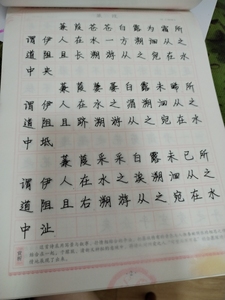 蒹葭苍苍白露为霜所
谓伊人在水一方溯洄从之
道阻且长溯游从之宛在水
中央
蒹葭萋萋白露未晞所
谓伊人在水之湄溯洄从之
道阻且跻溯游从之宛在水
中坻
蒹葭采采白露未已所
谓伊人在水之涘溯洄从之
道阻且右溯游从之宛在水
中沚